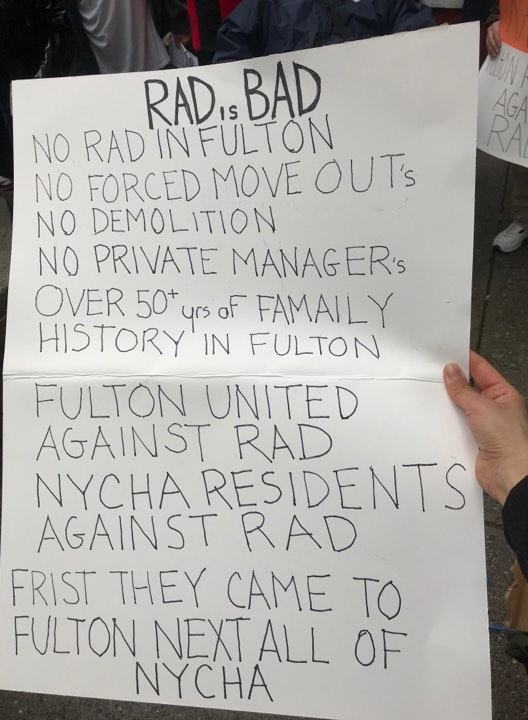 RAD is BAD
NO RAD IN FULTON
NO FORCED MOVE OUT's
NO DEMOLITION
NO PRIVATE MANAGER's
OVER 50+ yrs of FAMAILY
HISTORY IN FULTON
FULTON UNITED
AGAINST RAD
NYCHA RESIDENTS
AGAINST RAD
FRIST THEY CAME TO
FULTON NEXT ALL OF
NYCHA